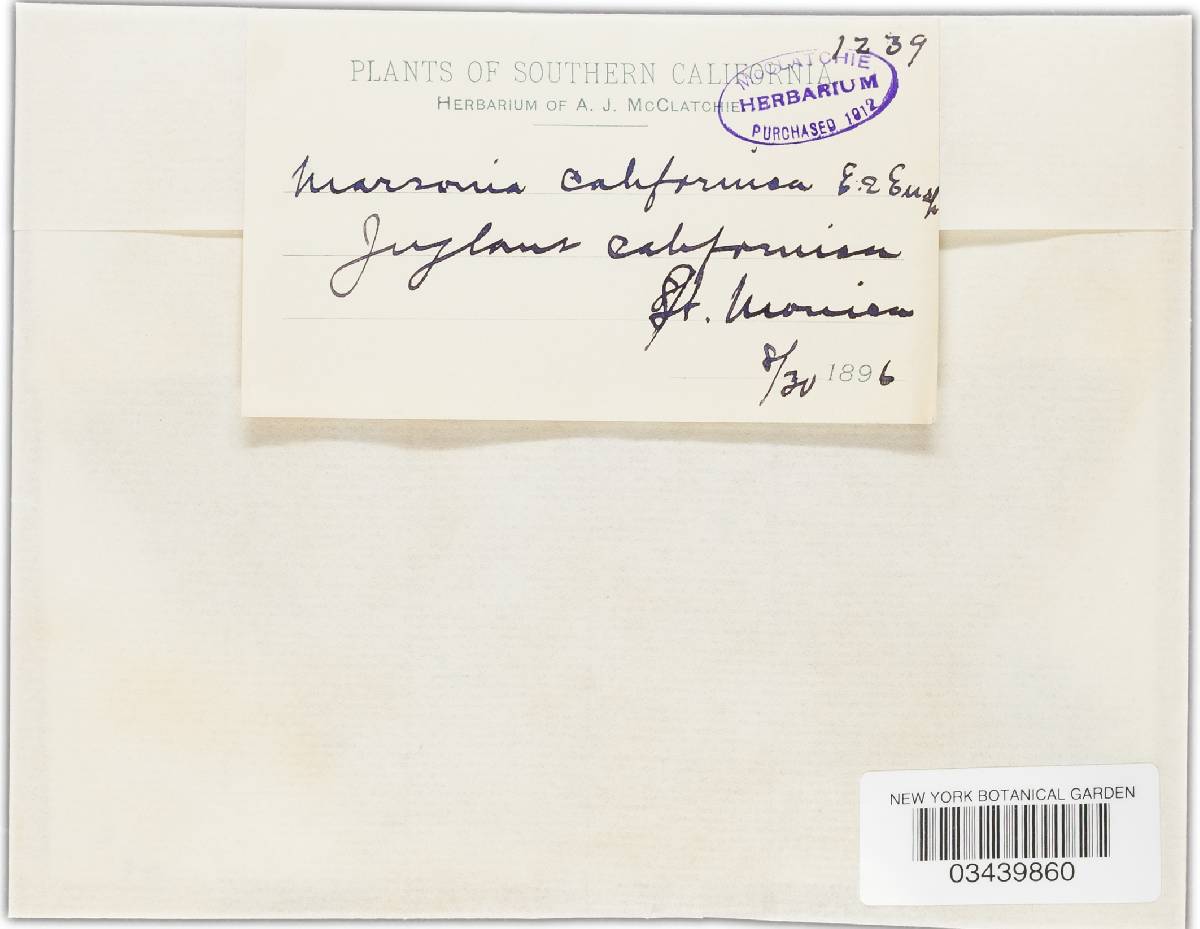 1239
PLANTS OF SOUTHERN CALIFORNIA
HERBARIUM OF A. J. MCCLATCHIE
MCCLATCHIE
HERBARIUM
PURCHASED 1912
Marsonia californica E. & Ev. sp.
Juglans californica
St. Monica
8/30 1896
NEW YORK BOTANICAL GARDEN
03439860